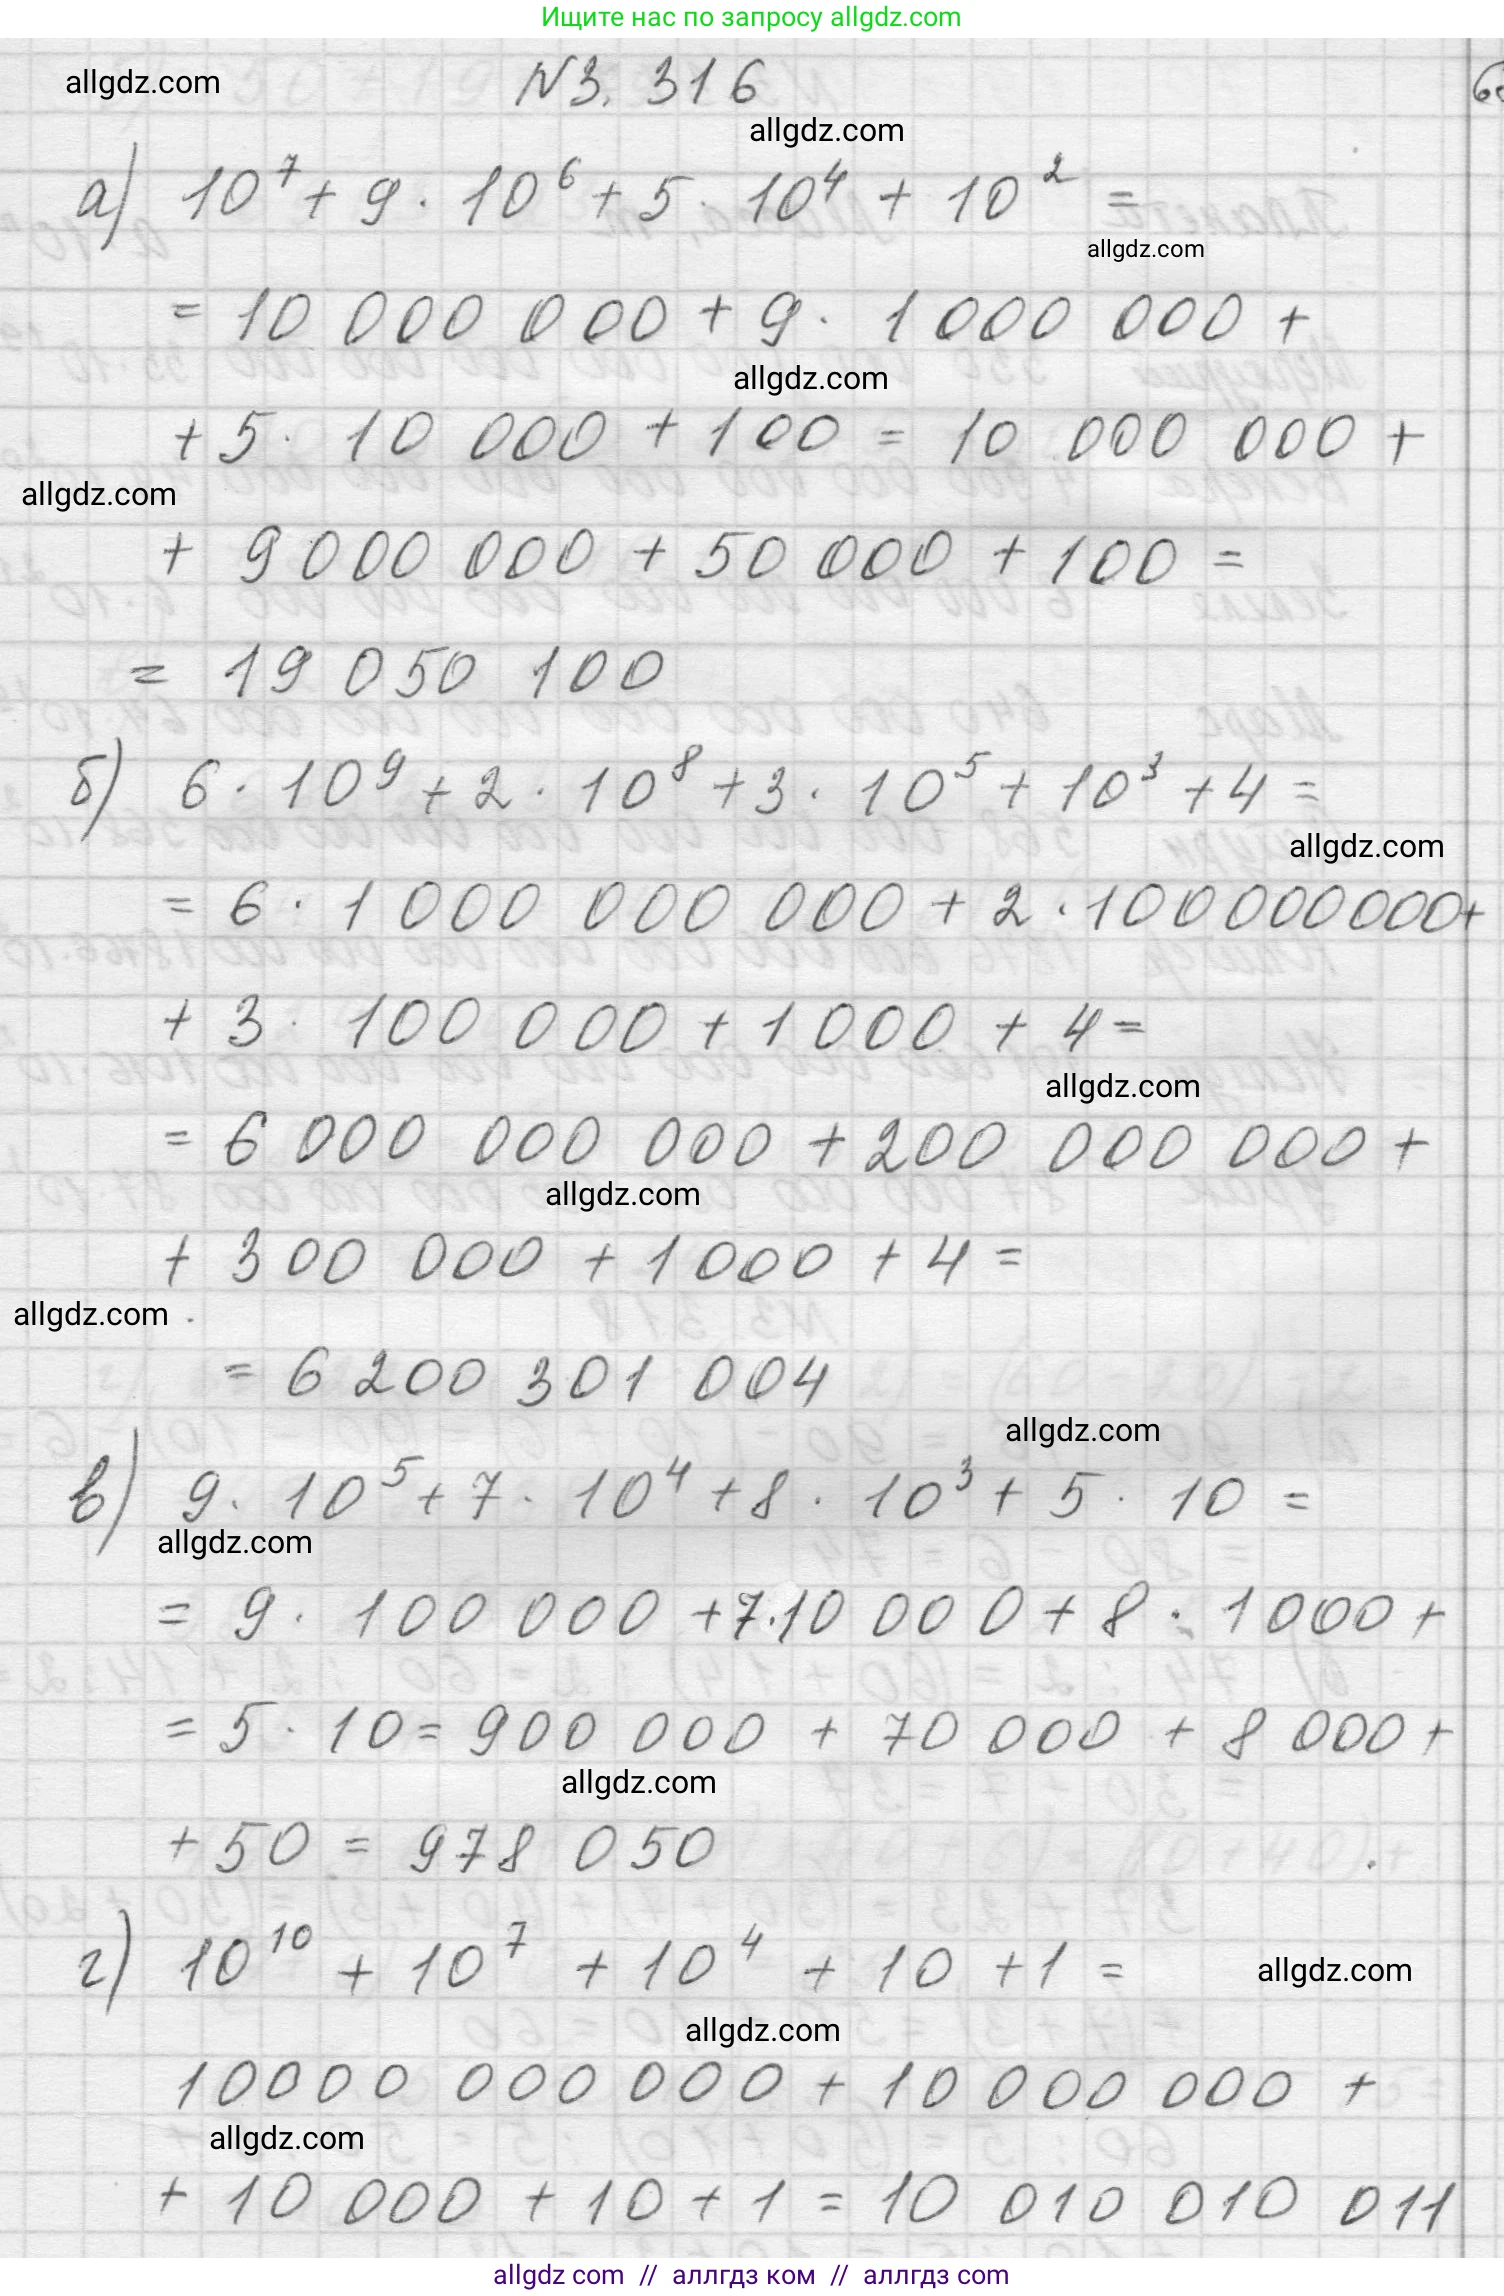 Ищите нас по запросу allgdz.com
allgdz.com
N3. 316
allgdz.com
а) 10⁷ + 9 · 10⁶ + 5 · 10⁴ + 10² =
allgdz.com
= 10 000 000 + 9 · 1 000 000 +
allgdz.com
+ 5 · 10 000 + 100 = 10 000 000 +
allgdz.com
+ 9 000 000 + 50 000 + 100 =
= 19 050 100
б) 6 · 10⁹ + 2 · 10⁸ + 3 · 10⁵ + 10³ + 4 =
allgdz.com
= 6 · 1 000 000 000 + 2 · 100 000 000 +
+ 3 · 100 000 + 1 000 + 4 =
allgdz.com
= 6 000 000 000 + 200 000 000 +
allgdz.com
+ 300 000 + 1000 + 4 =
allgdz.com
= 6 200 301 004
allgdz.com
в) 9 · 10⁵ + 7 · 10⁴ + 8 · 10³ + 5 · 10 =
allgdz.com
= 9 · 100 000 + 7 · 10 000 + 8 · 1 000 +
= 5 · 10 = 900 000 + 70 000 + 8 000 +
allgdz.com
+ 50 = 978 050
г) 10¹⁰ + 10⁷ + 10⁴ + 10 + 1 =
allgdz.com
allgdz.com
10000 000 000 + 10 000 000 +
allgdz.com
+ 10 000 + 10 + 1 = 10 010 010 011
allgdz com // аллгдз ком // аллгдз com